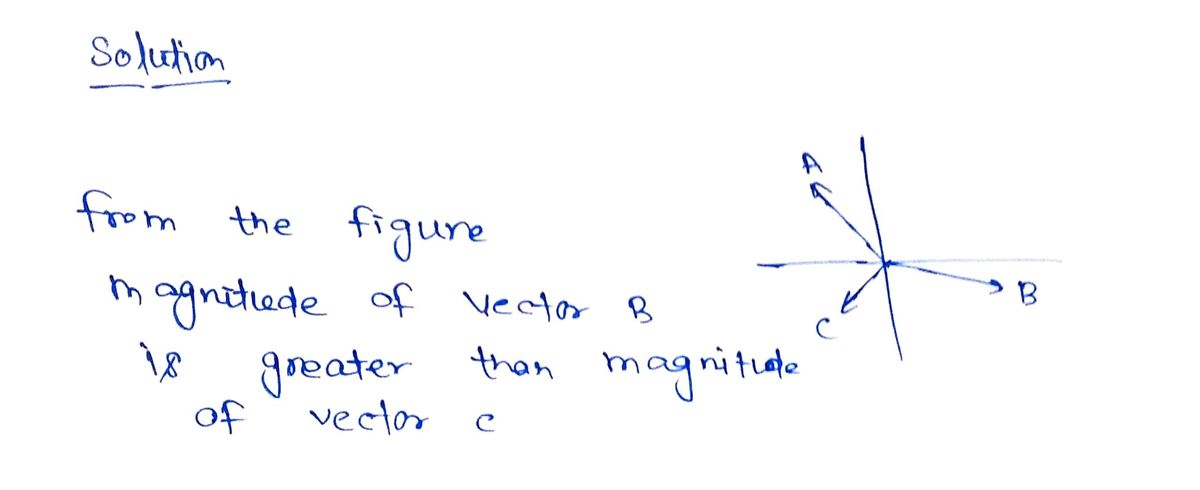 Solution
from the figure
magnitude of vector B
is greater than magnitude
of vector c
A
B
C